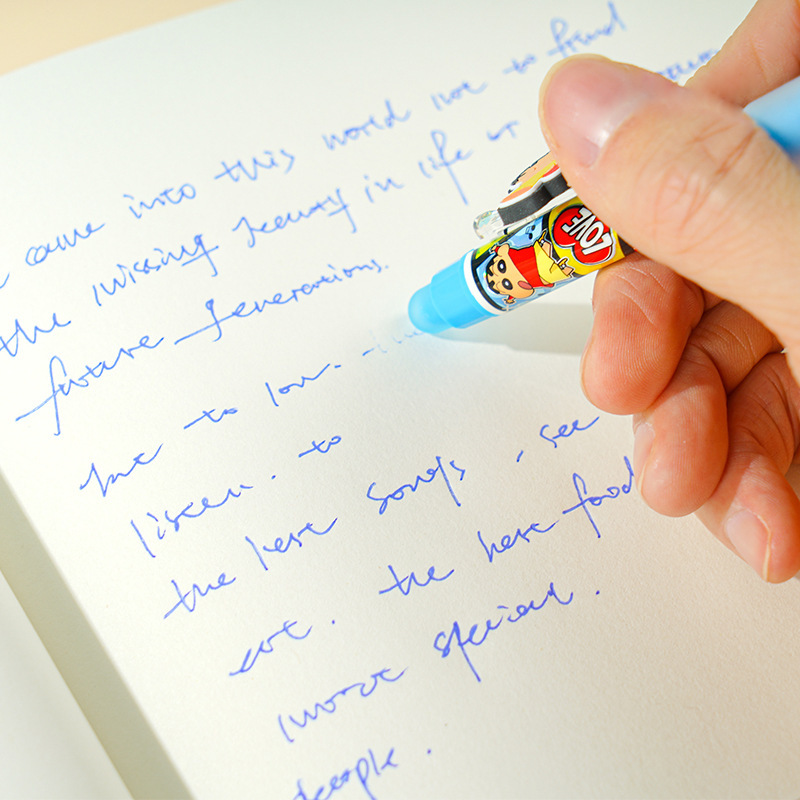 came into this world not to find
the missing beauty in life or
future generations.
but to love. the
listen. to
the best songs, see
eat. the best food
most special.
people.
LOVE